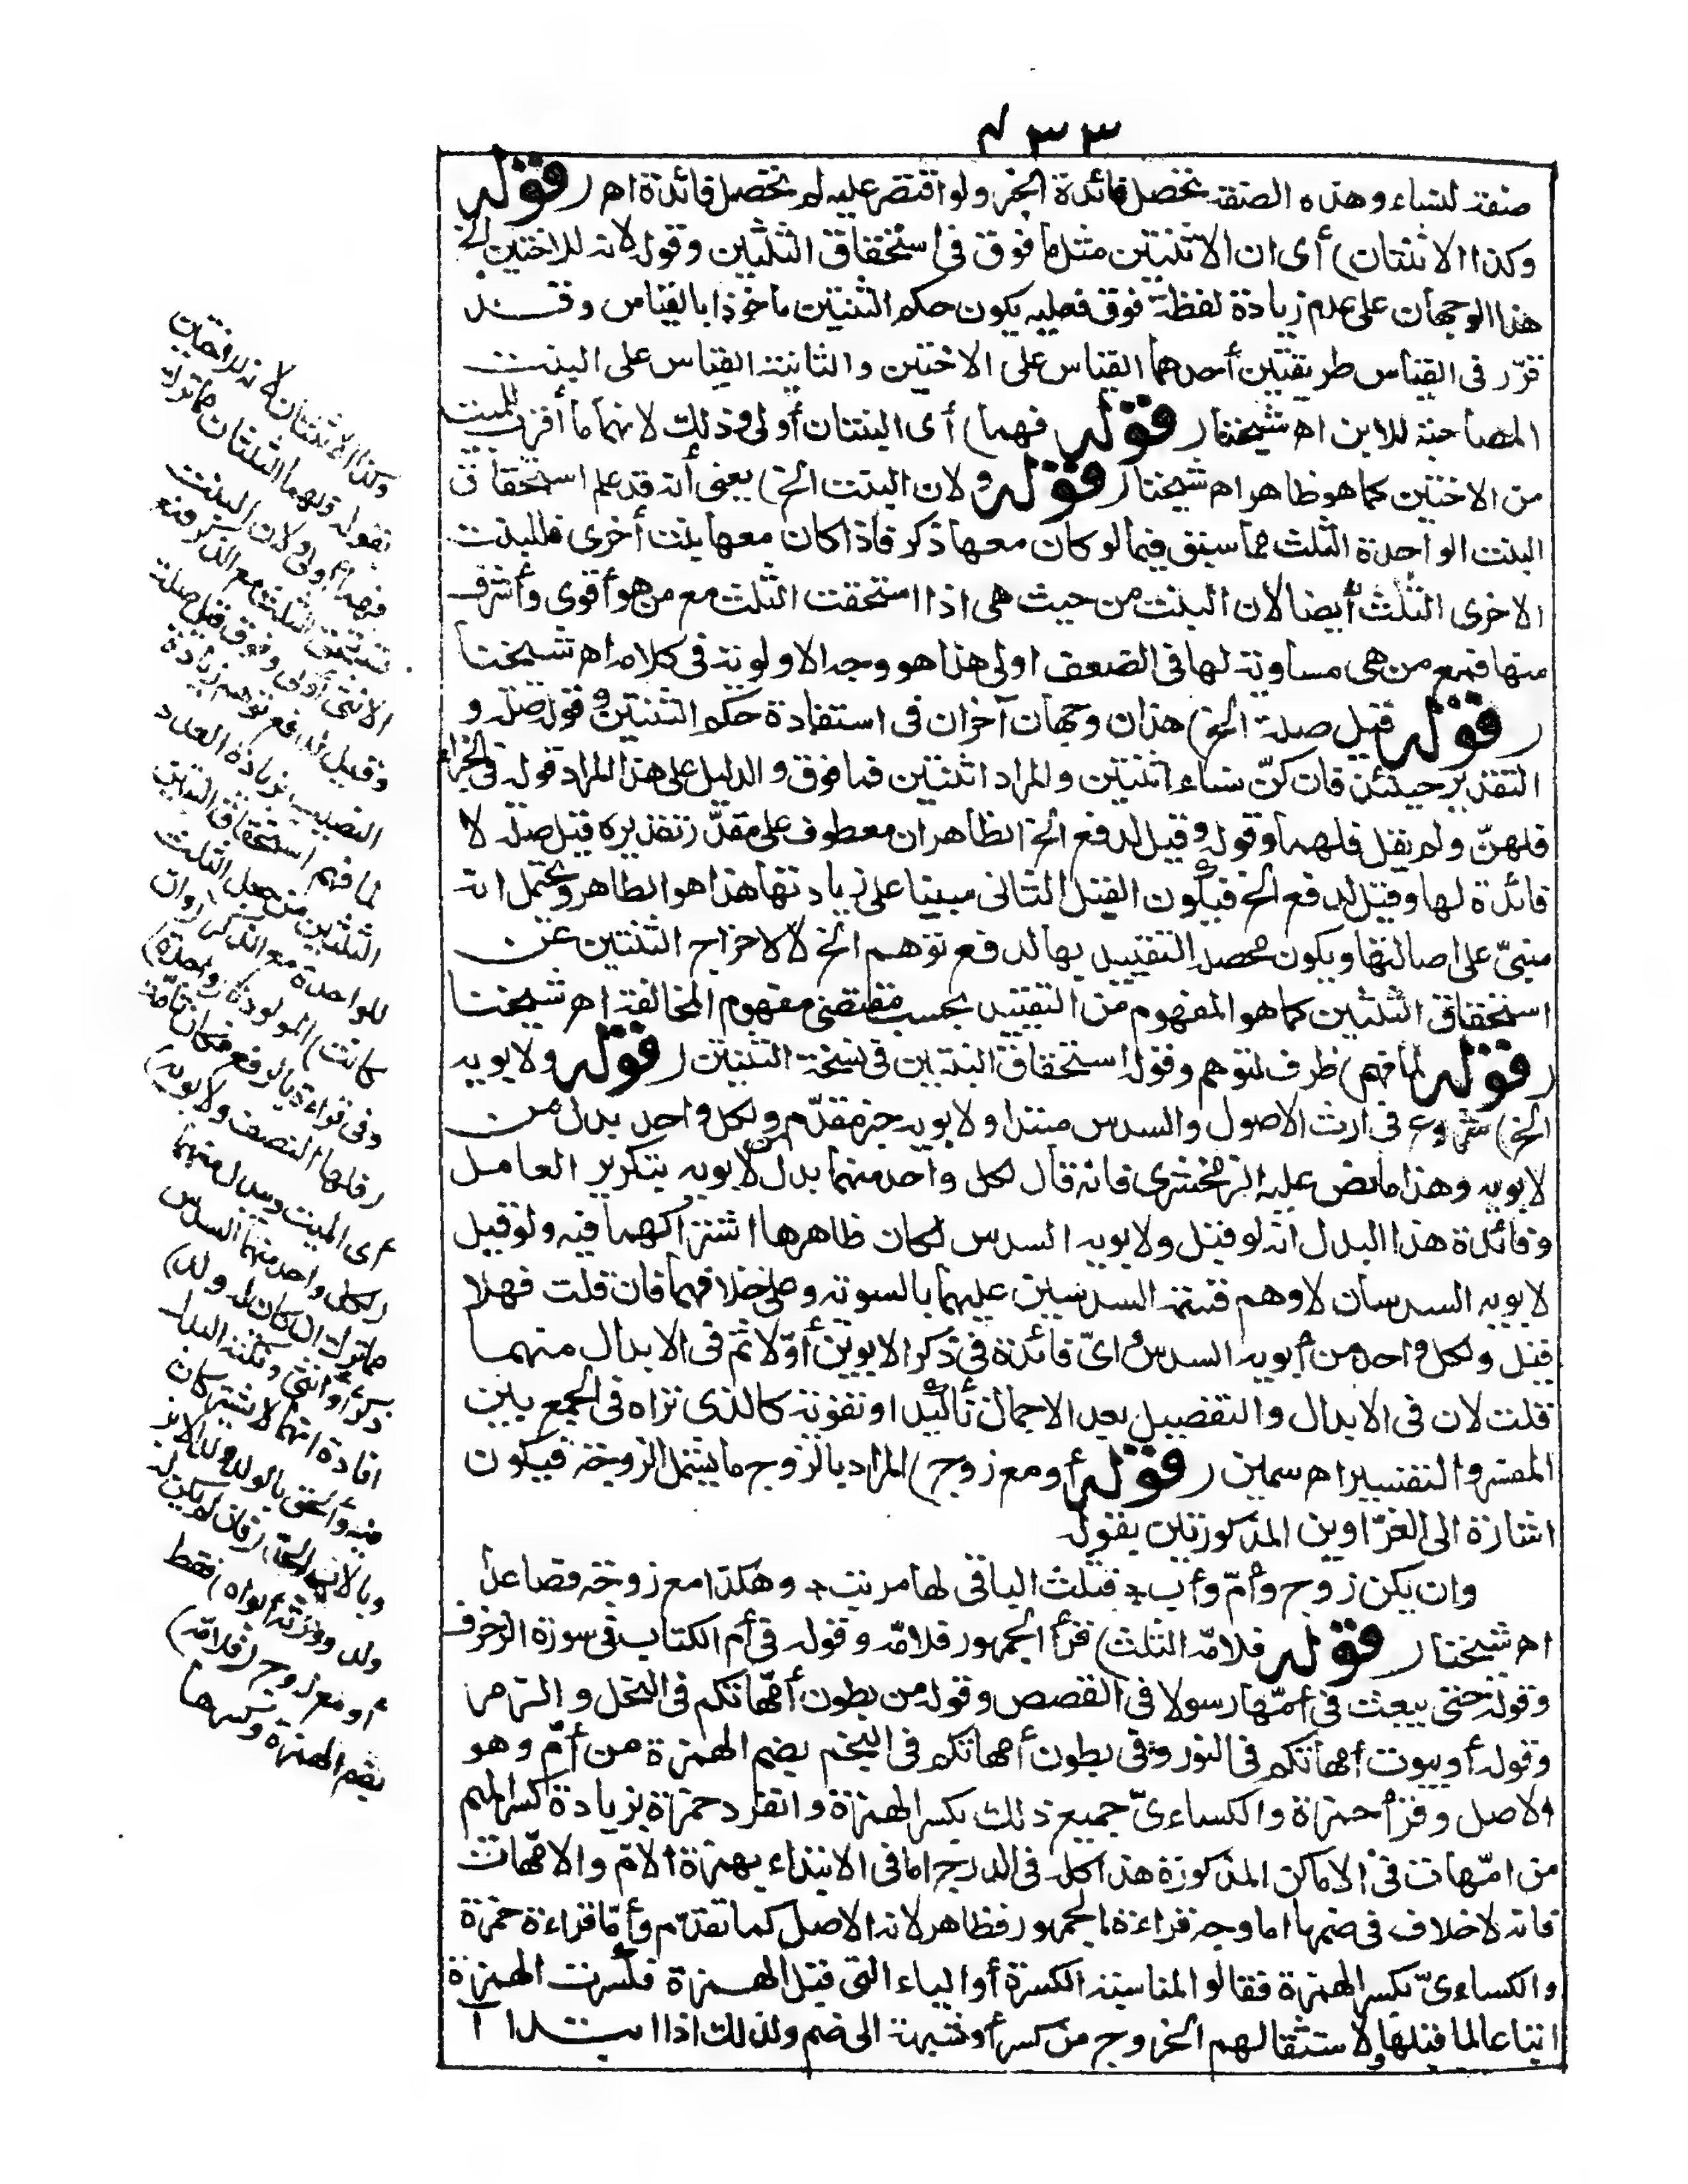 ٤٣٣
صفة لنساء وهذه الصفة تحصل فائدة الخبر ولو اقتصر عليه لم تحصل فائدة اه (قوله
وكذا الاثنتان) أى ان الاثنتين مثل ما فوق فى استحقاق الثلثين وقوله لانه للاختين الخ
هذا الوجهان على عدم زيادة لفظة فوق فعليه يكون حكم الثنتين مأخوذا بالقياس وقد
قرّر فى القياس طريقتين أحدهما القياس على الاختين والثانية القياس على البنت
المصاحبة للابن اه شيخنا (قوله فهما) أى البنتان أولى وذلك لانهما أقرب للميت
من الاختين كما هو ظاهر اه شيخنا (قوله ولان البنت الخ) يعنى أنه قد علم استحقاق
البنت الواحدة الثلث مما سبق فيما لو كان معها ذكر فاذا كان معها بنت أخرى فللبنت
الاخرى الثلث أيضا لان البنت من حيث هى اذا استحقت الثلث مع من هو أقوى وأشرف
منها فمع من هى مساوية لها فى الضعف اولى هذا هو وجه الاولوية فى كلامه اه شيخنا
(قوله قيل صلة الخ) هذان وجهان آخران فى استفادة حكم الثنتين وقوله صلة و
التقدير حينئذ فان كنّ نساء اثنتين والمراد اثنتين فما فوق والدليل على هذا المراد قوله فى الجزاء
فلهنّ ولم يقل فلهما وقوله وقيل لدفع الخ الظاهر ان معطوف على مقدّر تقديره قيل صلة لا
فائدة لها وقيل لدفع الخ فيكون القيل الثانى مبنيا على زيادتها هذا هو الظاهر ويحتمل انه
مبنىّ على اصالتها ويكون محصل التقييد بها لدفع توهم الخ لا لاخراج الثنتين عن
استحقاق الثلثين كما هو المفهوم من التقييد بحسب مقتضى مفهوم المخالفة اه شيخنا
(قوله لما فهم) ظرف لتوهم وقوله استحقاق البنتين فى نسخة الثنتين (قوله ولابويه
الخ) شروع فى ارث الاصول والسدس مبتدا ولابويه خبر مقدّم ولكل واحد بدل من
لابويه وهذا ما نص عليه الزمخشرى فانه قال لكل واحد منهما بدل من لابويه بتكرير العامل
وفائدة هذا البدل انه لو قيل ولابويه السدس لكان ظاهرها اشتراكهما فيه ولو قيل
لابويه السدسان لاوهم قسمة السدسين عليهما بالسوية وعلى خلافهما فان قلت فهلا
قيل ولكل واحد من أبويه السدس اىّ فائدة فى ذكر الابوين أوّلا ثم فى الابدال منهما
قلت لان فى الابدال والتفصيل بعد الاجمال تأكيدا وتقوية كالذى تراه فى الجمع بين
المفسر والتفسير اه سمين (قوله أو مع زوج) المراد بالزوج ما يشمل الزوجة فيكون
اشارة الى الغرّاوين المذكورتين بقوله
وان يكن زوج وأمّ وأب ؞ فثلث الباقى لها مرتب ؞ وهكذا مع زوجة فصاعدا
اه شيخنا (قوله فلامّه الثلث) قرأ الجمهور فلامّه وقوله فى أم الكتاب فى سورة الزخرف
وقوله حتى يبعث فى أمّها رسولا فى القصص وقوله من بطون أمّهاتكم فى النحل والزمر
وقوله أو بيوت أمهاتكم فى النور وفى بطون أمهاتكم فى النجم بضم الهمزة من أمّ وهو
الاصل وقرأ حمزة والكساءىّ جميع ذلك بكسر الهمزة وانفرد حمزة بزيادة كسر الميم
من امّهات فى الاماكن المذكورة هذا كله فى الدرج اما فى الابتداء بهمزة الامّ والامّهات
فانه لا خلاف فى ضمها اما وجه قراءة الجمهور فظاهر لانه الاصل كما تقدّم وأمّا قراءة حمزة
والكساءىّ بكسر الهمزة فقالوا المناسبة الكسرة أو الياء التى قبل الهمزة فكسرت الهمزة
اتباعا لما قبلها ولاستثقالهم الخروج من كسر أو شبهه الى ضم ولذلك اذا ابتدا آ
وكذا الاثنتان لانه للاختين
بقوله فلهما الثلثان مما ترك
فهما أولى ولان البنت
تستحق الثلث مع الذكر فمع
الانثى أولى وفوق قيل صلة
وقيل لدفع توهم زيادة
النصيب بزيادة العدد
لما فهم استحقاق البنتين
الثلثين من جعل الثلث
للواحدة مع الذكر (وان
كانت) المولودة (واحدة)
وفى قراءة بالرفع فكان تامّة
(فلها النصف ولابويه)
أى الميت ويبدل منهما
(لكل واحد منهما السدس
مما ترك ان كان له ولد)
ذكر أو أنثى ونكتة البدل
افادة انهما لا يشتركان
فيه وألحق بالولد ولد الابن
وبالاب الجد (فان لم يكن له
ولد وورثه أبواه) فقط
أو مع زوج (فلامّه)
بضم الهمزة وكسرها